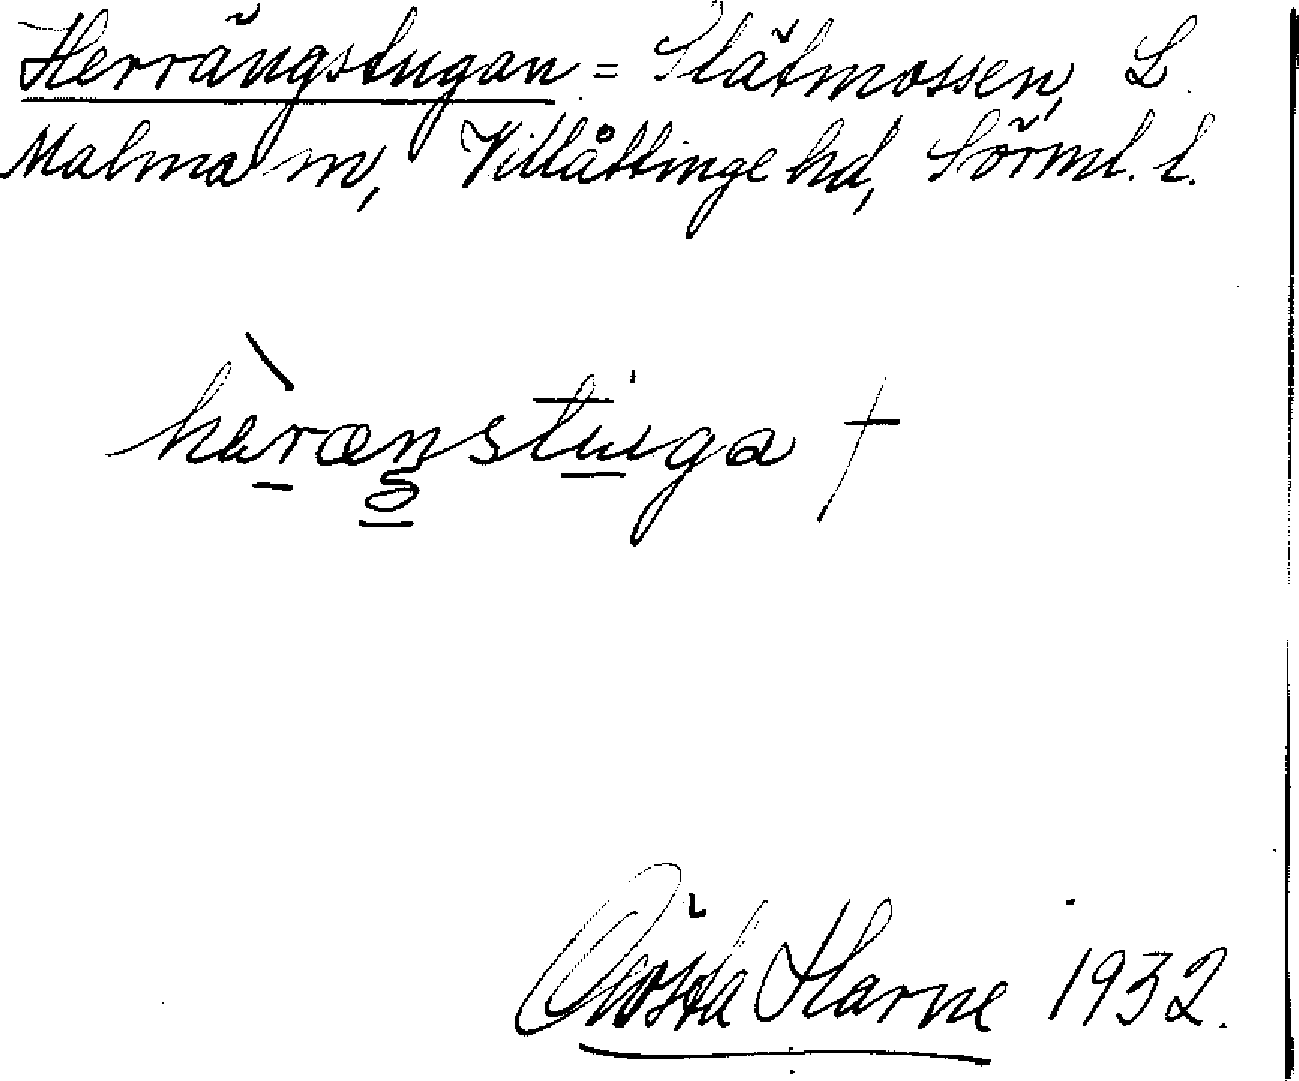 Herrängstugan = Slätmossen, L.
Malma sn, Villåttinge hd, Sörml. l.
hèræŋstuga †
Gösta Harne 1932.